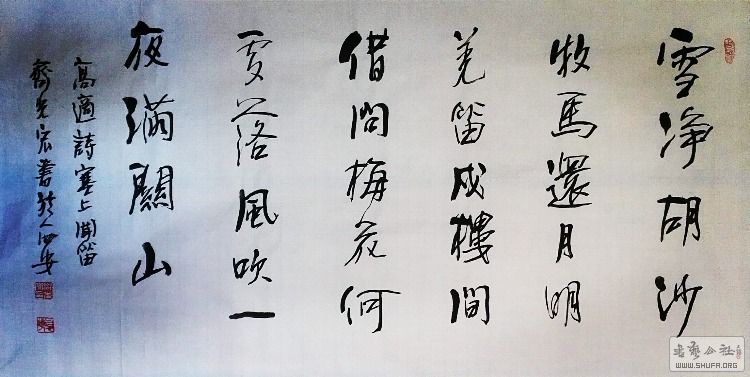 雪净胡沙
牧馬還月明
羌笛戍樓間
借問梅花何
處落風吹一
夜滿關山
高適詩塞上聞笛
書於西安
書藝公社
WWW.SHUFA.ORG